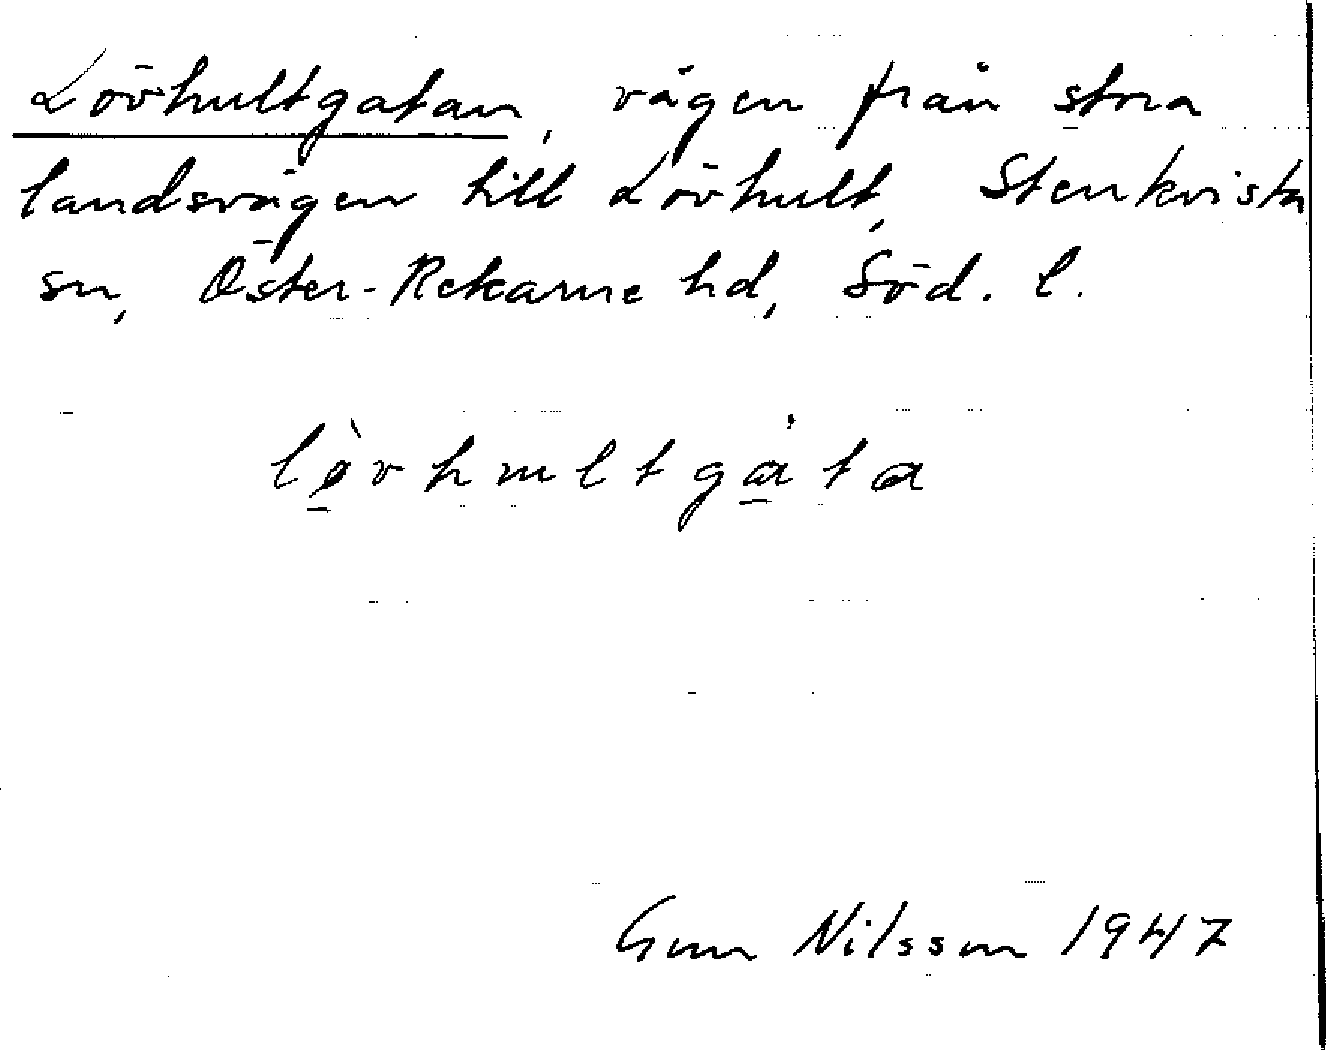 Lövhultgatan, vägen från stora
landsvägen till Lövhult, Stenkvista
sn, Öster-Rekarne hd, Söd. l.
lø̀vhultgáta
Gun Nilsson 1947